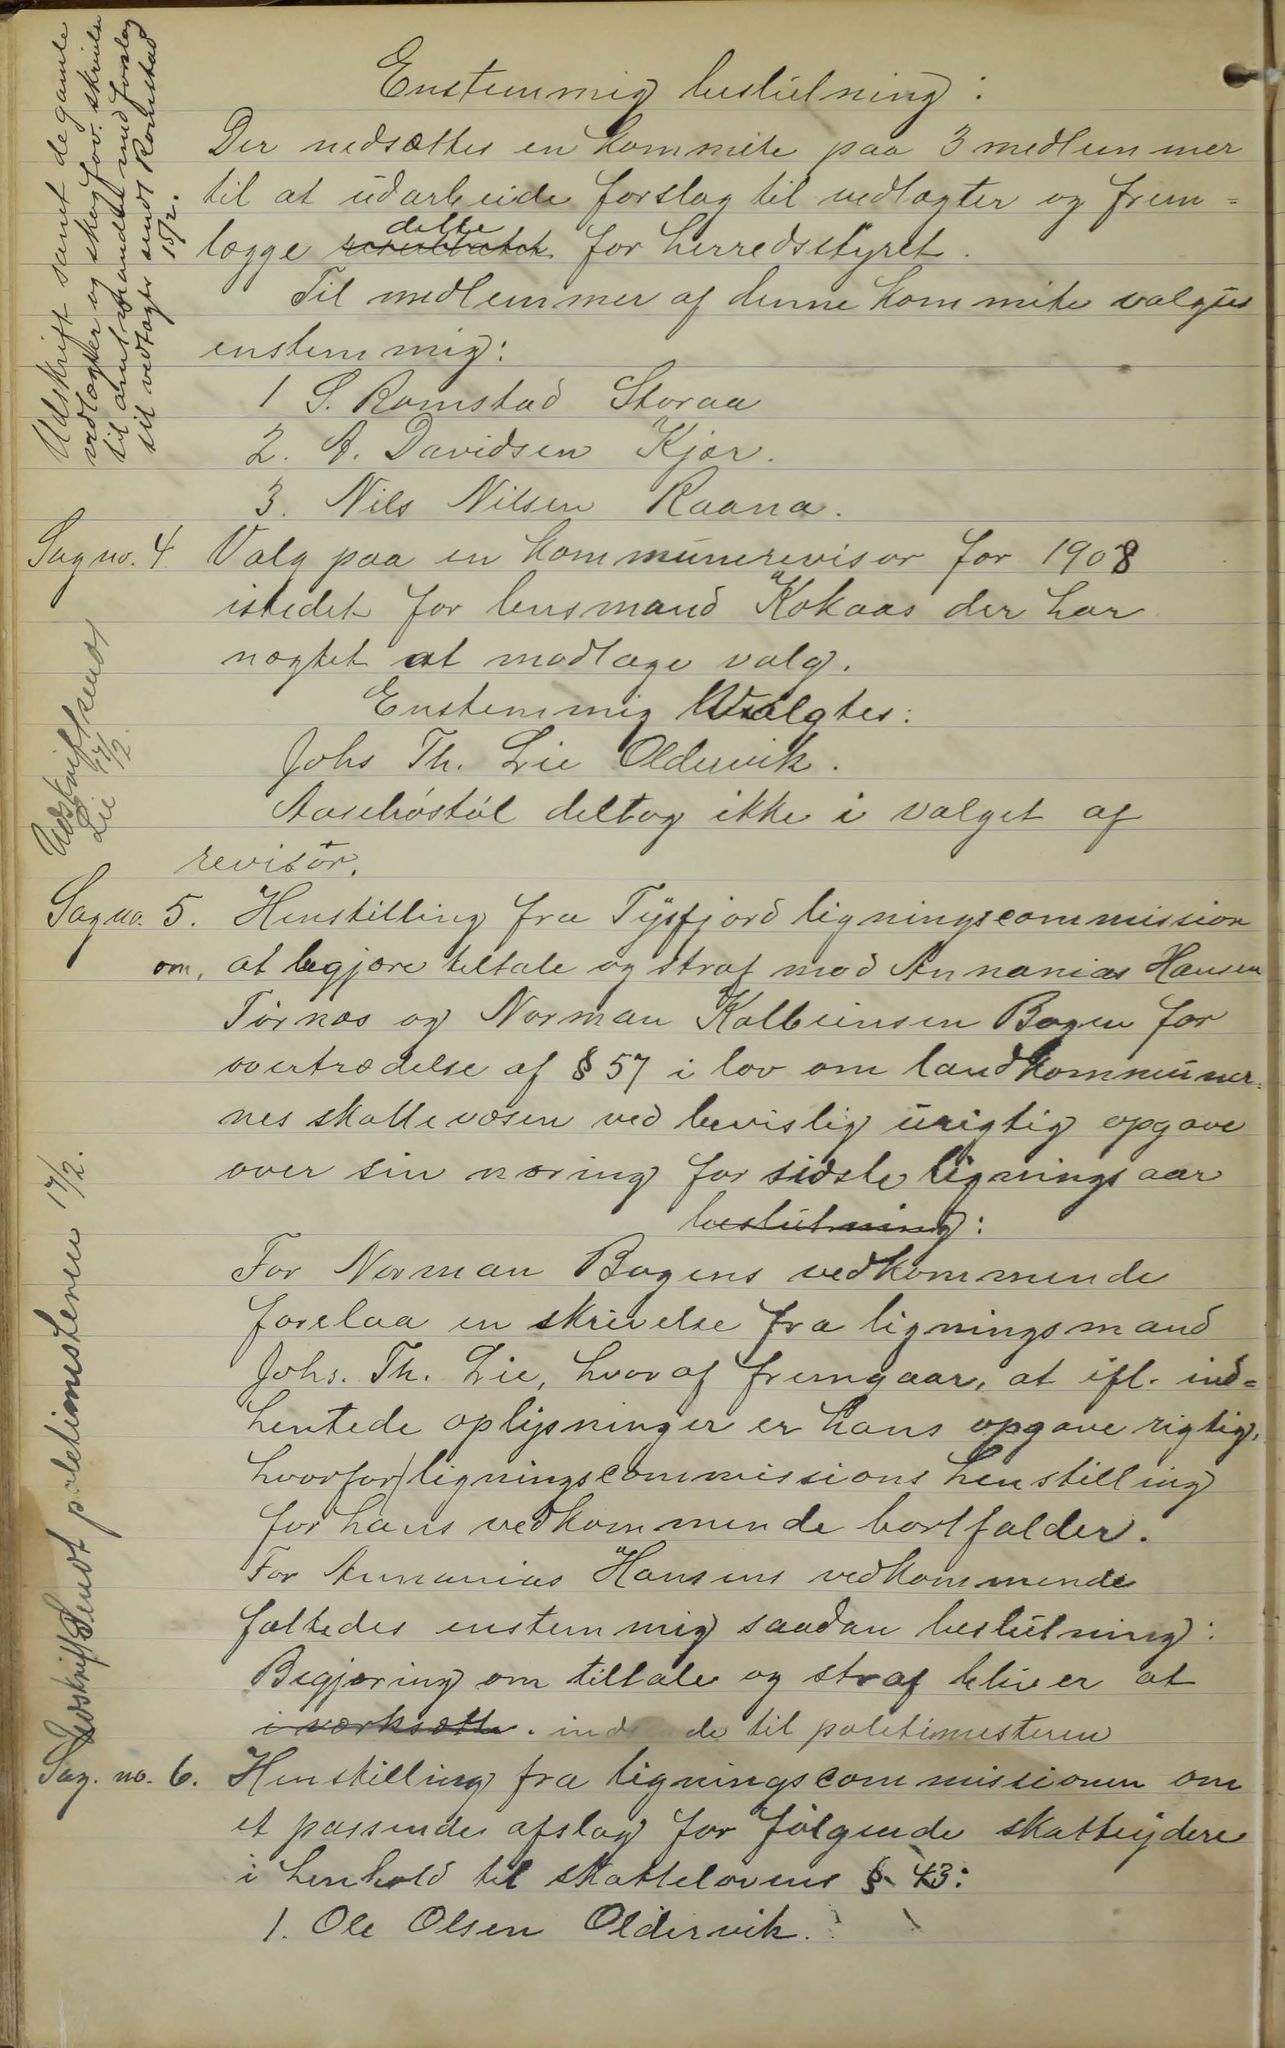 Enstemmig beslutning:
Der nedsættes en kommite paa 3 medlemmer
til at udarbeide forslag til vedtægter og frem=
lægge dette for herredsstyret.
Til medlemmer af denne kommite valgtes
enstemmig:
1 S. Romstad Storaa
2. A. Davidsen Kjær.
3. Nils Nilsen Raana.
Udskrift samt de gamle
vedtægter og skogfov. skrivelse
til amtmandet med forslag
til vedtægter sendt Romstad
15/2.
Sag no. 4. Valg paa en kommunerevisor for 1908
istedet for lensmand Kokaas der har
nægtet at modtage valg.
Enstemmig Valgtes:
Johs Th. Lie Oldervik.
Aasebøstøl deltog ikke i valget af
revisør.
Udskrift sendt
Lie 17/2.
Sag no. 5. Henstilling fra Tysfjord ligningscommission
om, at begjære tiltale og straf mod Annanias Hansen
Tørnæs og Norman Kolbeinsen Bogen for
overtrædelse af § 57 i lov om landkommuner=
nes skattevæsen ved bevislig urigtig opgave
over sin næring for sidste ligningsaar
beslutning:
For Norman Bogens vedkommende
forelaa en skrivelse fra ligningsmand
Johs. Th. Lie, hvoraf fremgaar, at ifl. ind=
hentede oplysninger er hans opgave rigtig,
hvorfor ligningscommissions henstilling
for hans vedkommende bortfalder.
For Annanias Hansens vedkommende
fattedes enstemmig saadan beslutning:
Begjæring om tiltale og straf bliver at
iværksætte. til politimesteren
Udskrift Sendt politimesteren 17/2.
Sag. no. 6. Henstilling fra ligningscommissionen om
et passende afslag for følgende skatteydere
i henhold til skattelovens § 43:
1. Ole Olsen Oldervik.